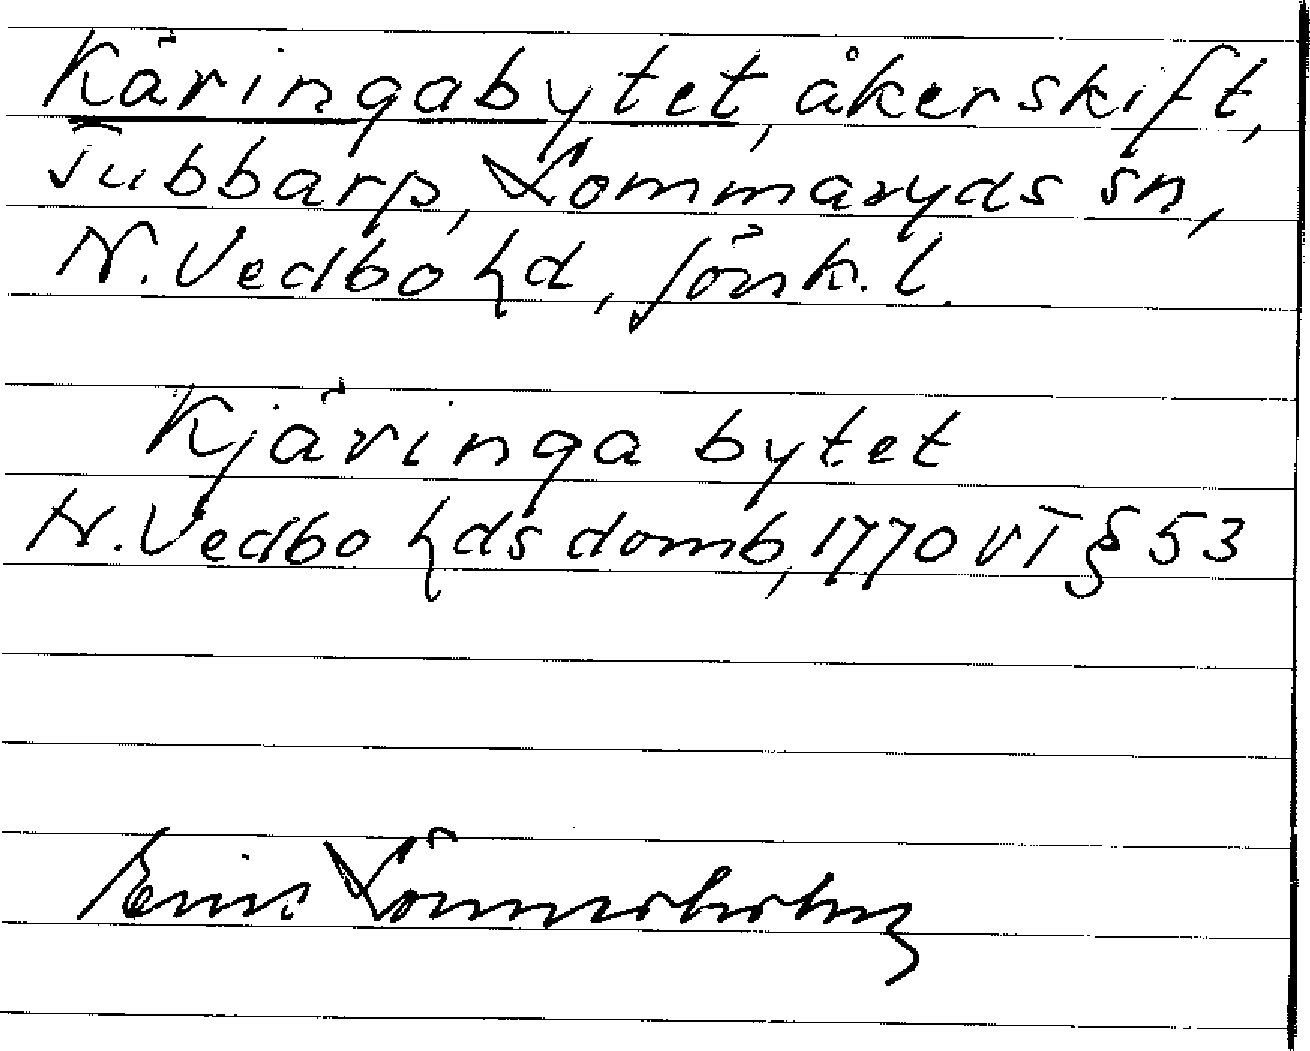 Käringabytet, åkerskift,
Tubbarp, Lommaryds sn,
N. Vedbo hd, Jönk. l.
Kjäringa bytet
N. Vedbo hds domb, 1770 VT § 53